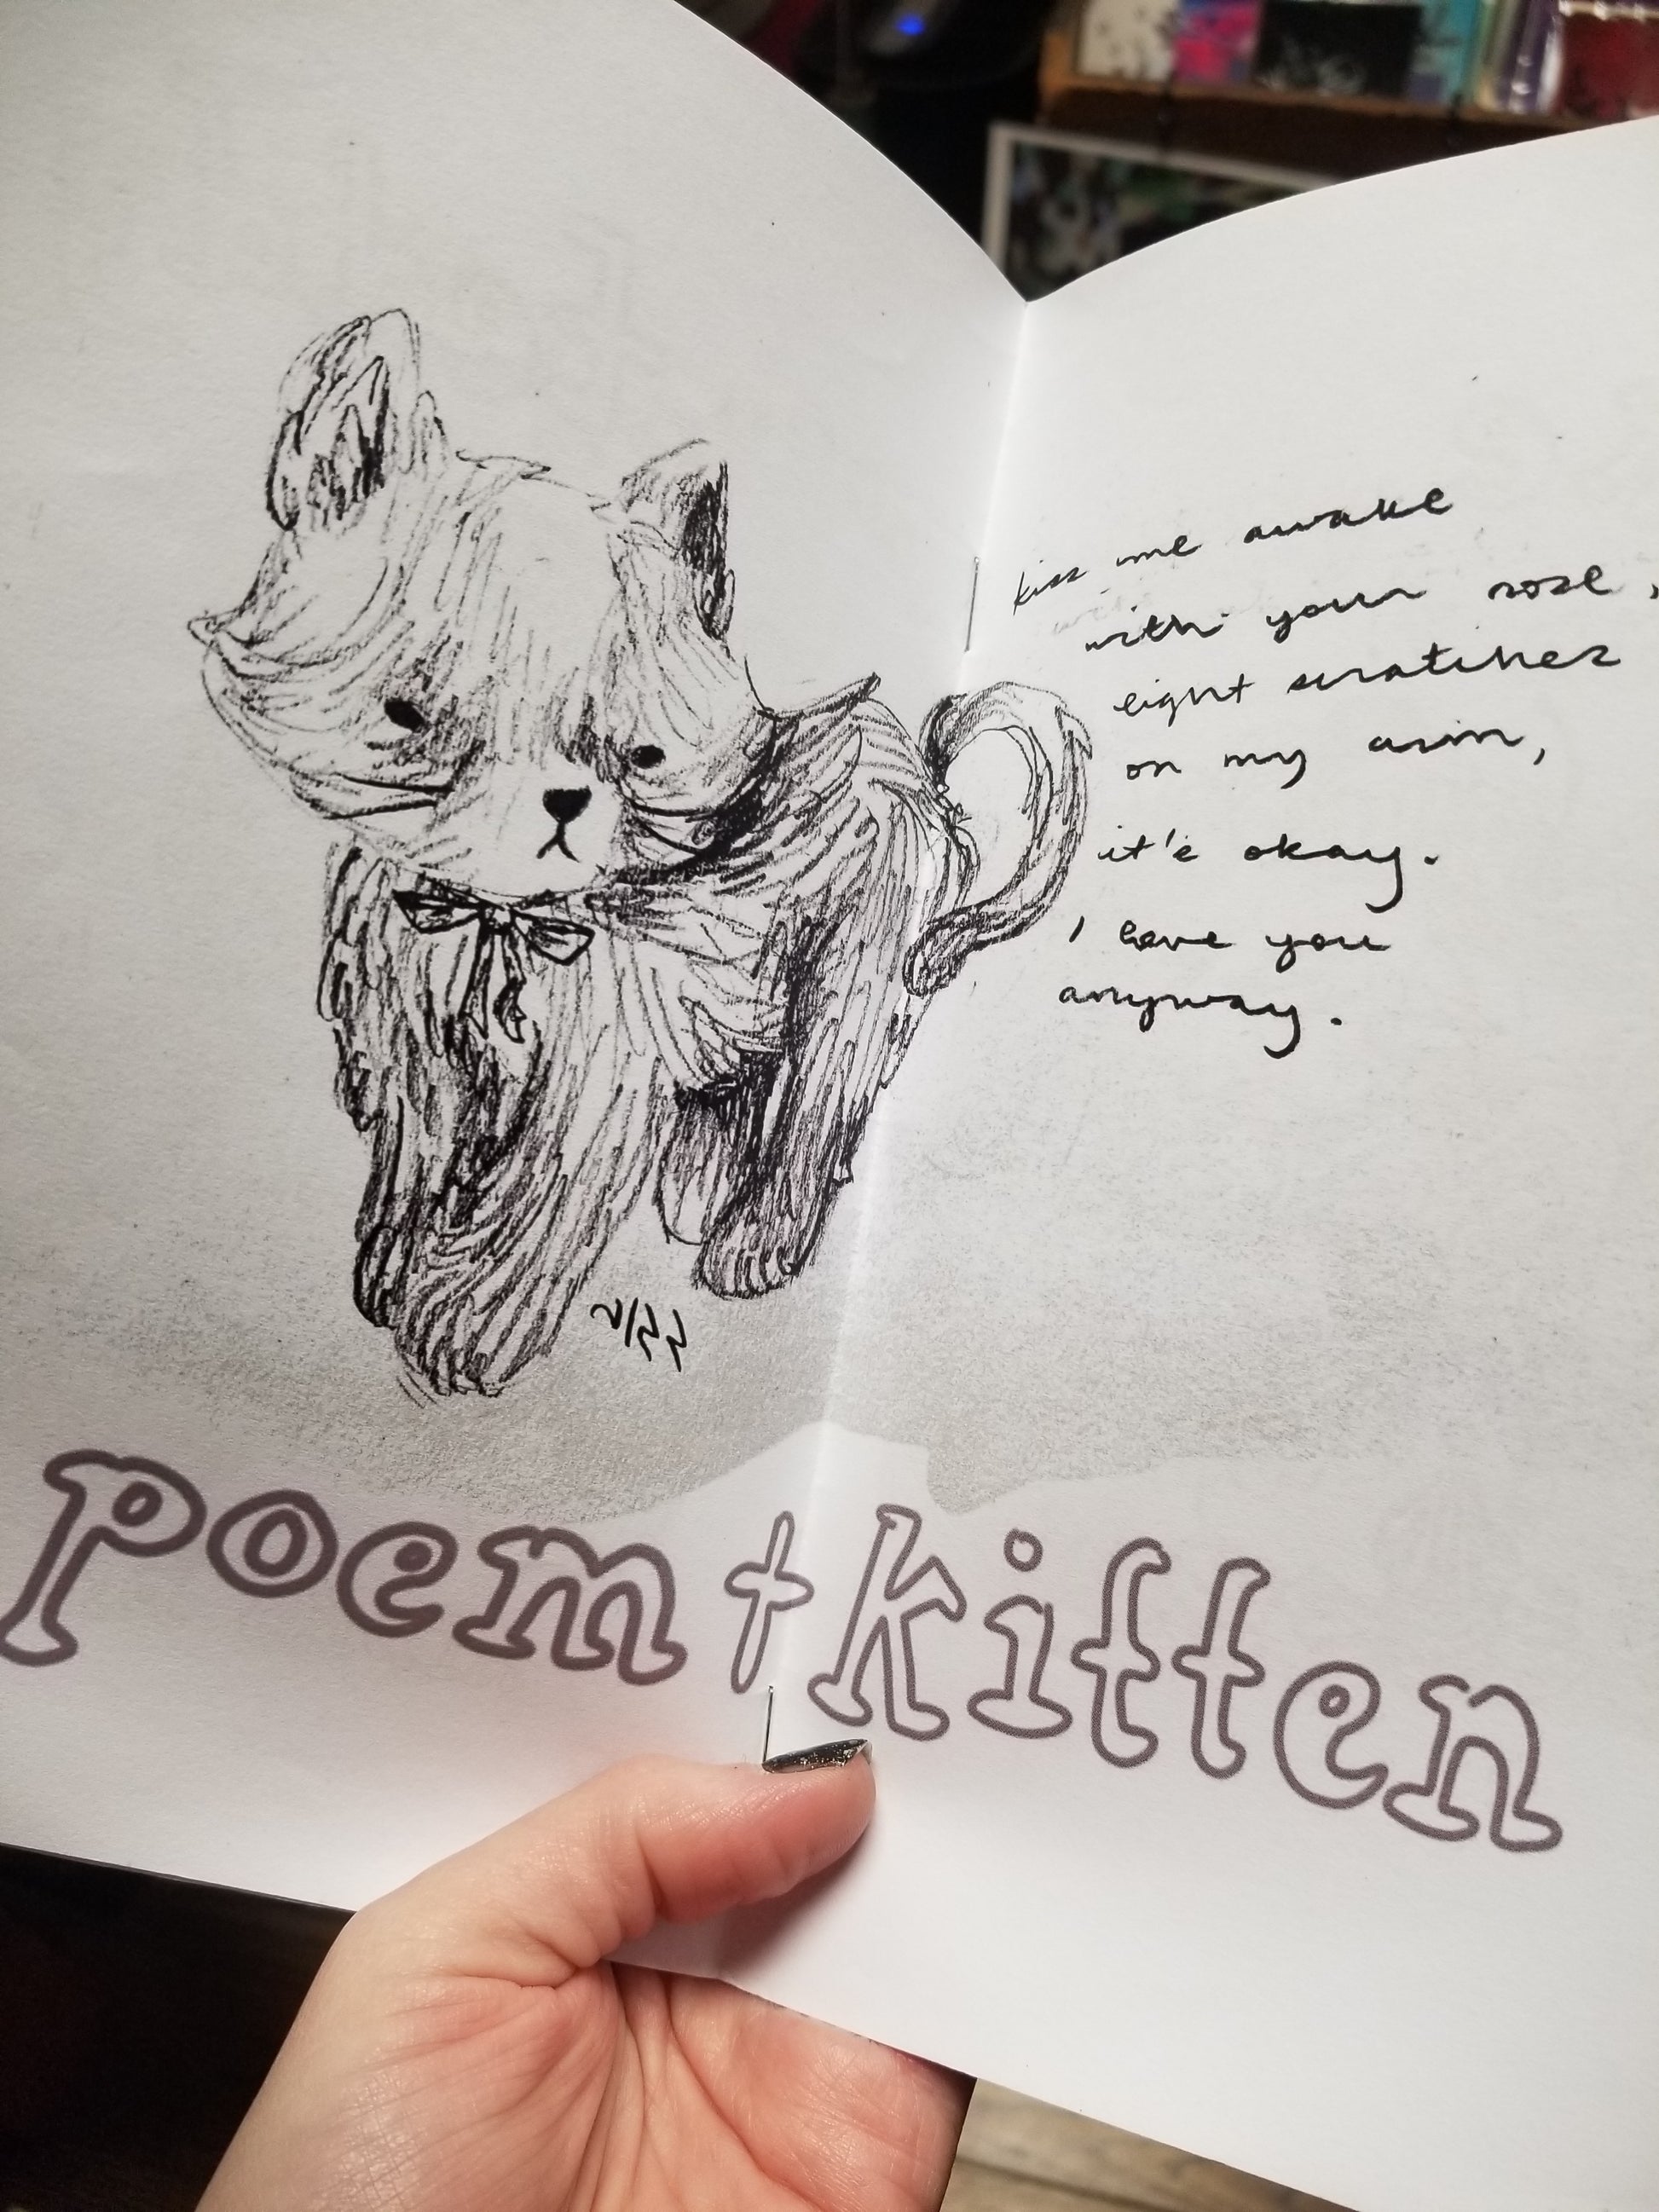 kiss me awake
with your rose,
eight scratches
on my arm,
it's okay.
I love you
anyway.
poem + kitten